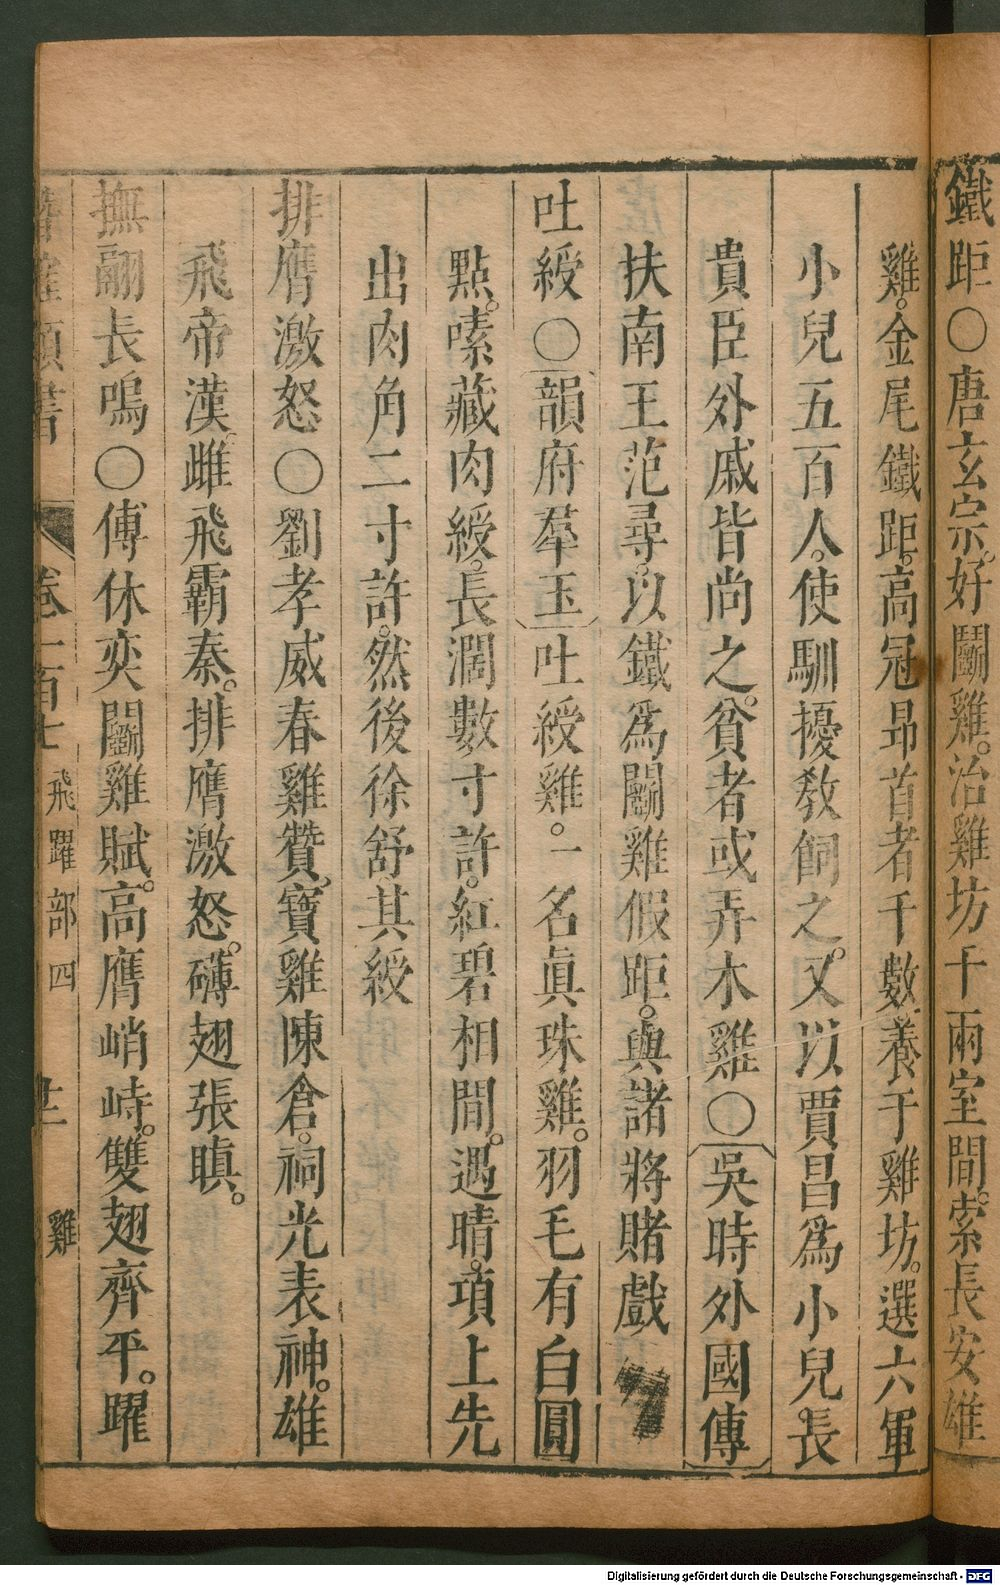 鐵距〇唐玄宗。好鬬雞。治雞坊于兩宮間。索長安雄
雞。金尾鐵距。高冠昻首者千數養于雞坊。選六軍
小兒五百人。使馴擾教飼之。又以賈昌爲小兒。長
貴臣外戚皆尚之。貧者或弄木雞〇吳時外國傳
扶南王范尋。以鐵爲鬬雞假距。與諸將賭戲
吐綬〇韻府羣玉吐綬雞。一名眞珠雞。羽毛有白圓
點。嗉藏肉綬。長濶數寸許。紅碧相間。遇晴。項上先
出肉角二寸許。然後徐舒其綬
排膺激怒〇劉孝威春雞贊。寶雞陳倉。祠光表神。雄
飛帝漢雌飛霸秦。排膺激怒。磚翅張瞋。
撫翮長鳴〇傅休奕鬬雞賦。高膺峭峙。雙翅齊平。躍
卷一百七 飛躍部四 十二 雞
Digitalisierung gefördert durch die Deutsche Forschungsgemeinschaft - DFG